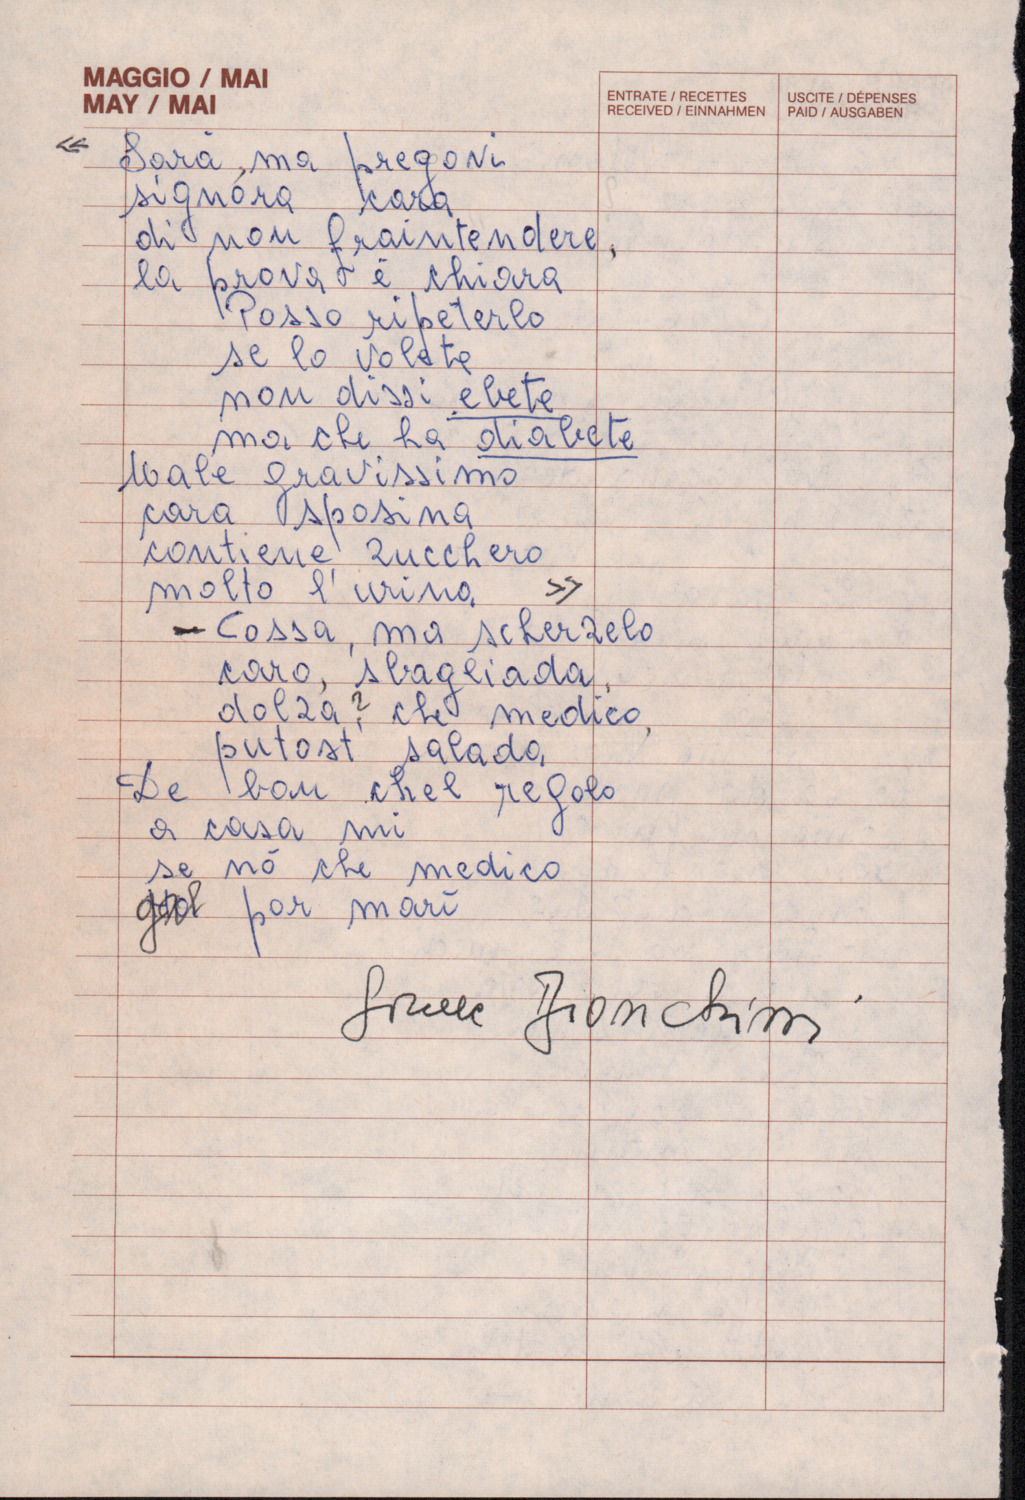 MAGGIO / MAI
MAY / MAI
ENTRATE / RECETTES
RECEIVED / EINNAHMEN
USCITE / DÉPENSES
PAID / AUSGABEN
« Sarà, ma pregovi
signóra cara
di non fraintendere,
la prova è chiara
Posso ripeterlo
se lo volete
non dissi ebete
ma che ha diabete
Male gravissimo
cara sposina
contiene zucchero
molto l'urina »
- Cossa, ma scherzelo
caro, sbagliada,
dolza? che medico,
putost salada
De bon chel regolo
a casa mi
se nò che medico
por marì
Bianchini